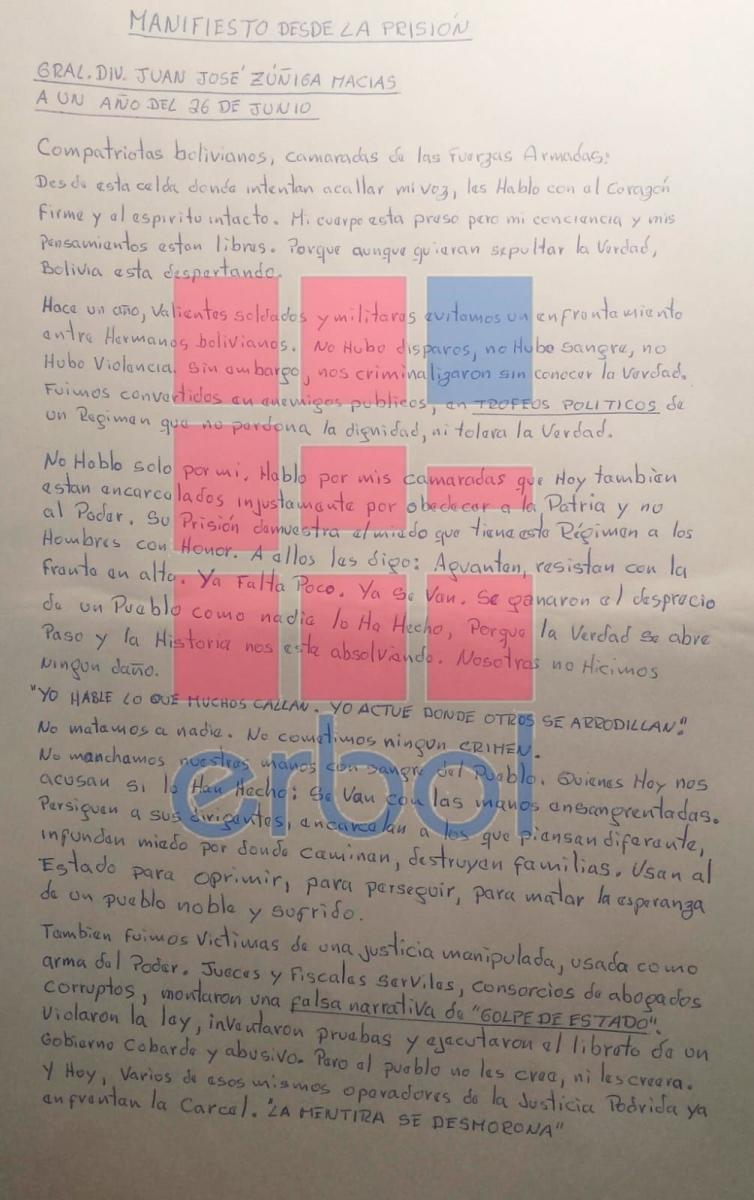 MANIFIESTO DESDE LA PRISIÓN
GRAL. DIV. JUAN JOSÉ ZÚÑIGA MACIAS
A UN AÑO DEL 26 DE JUNIO
Compatriotas bolivianos, camaradas de las Fuerzas Armadas:
Desde esta celda donde intentan acallar mi voz, les Hablo con el Corazón
firme y el espiritu intacto. Mi cuerpo esta preso pero mi conciencia y mis
Pensamientos estan libres. Porque aunque quieran sepultar la Verdad,
Bolivia esta despertando.
Hace un año, Valientes soldados y militares evitamos un enfrentamiento
entre Hermanos bolivianos. No Hubo disparos, no Hubo Sangre, no
Hubo Violencia. Sin embargo, nos criminalizaron sin conocer la Verdad.
Fuimos convertidos en enemigos publicos, en TROFEOS POLITICOS de
un Regimen que no perdona la dignidad, ni tolera la Verdad.
No Hablo solo por mi. Hablo por mis camaradas que Hoy tambien
estan encarcelados injustamente por obedecer a la Patria y no
al Poder. Su Prisión demuestra el miedo que tiene este Régimen a los
Hombres con Honor. A ellos les digo: Aguanten, resistan con la
frente en alto. Ya Falta Poco. Ya Se Van. Se ganaron el desprecio
de un Pueblo como nadie lo Ha Hecho, Porque la Verdad se abre
Paso y la Historia nos esta absolviendo. Nosotros no Hicimos
Ningun daño.
"YO HABLE LO QUE MUCHOS CALLAN. YO ACTUE DONDE OTROS SE ARRODILLAN."
No matamos a nadie. No cometimos ningun CRIMEN.
No manchamos nuestras manos con sangre del Pueblo. Quienes Hoy nos
acusan si lo Han Hecho: Se Van con las manos ensangrentadas.
Persiguen a sus dirigentes, encarcelan a los que piensan diferente,
infunden miedo por donde caminan, destruyen familias. Usan al
Estado para oprimir, para perseguir, para matar la esperanza
de un pueblo noble y sufrido.
Tambien fuimos Victimas de una justicia manipulada, usada como
arma del Poder. Jueces y Fiscales Serviles, consorcios de abogados
corruptos, montaron una falsa narrativa de "GOLPE DE ESTADO".
Violaron la ley, inventaron pruebas y ejecutaron el libreto de un
Gobierno Cobarde y abusivo. Pero el pueblo no les cree, ni les creera.
Y Hoy, Varios de esos mismos operadores de la Justicia Podrida ya
enfrentan la Carcel. "LA MENTIRA SE DESMORONA"
erbol